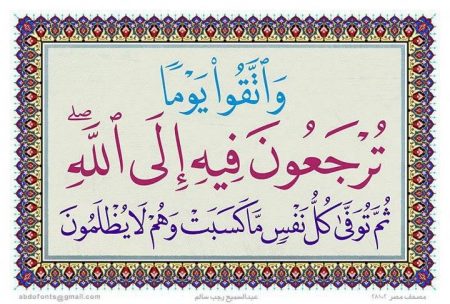 وَٱتَّقُوا۟ يَوْمًا
تُرْجَعُونَ فِيهِ إِلَى ٱللَّهِ ۖ
ثُمَّ تُوَفَّىٰ كُلُّ نَفْسٍ مَّا كَسَبَتْ وَهُمْ لَا يُظْلَمُونَ
abdofonts@gmail.com عبدالسميع رجب سالم مصحف مصر ٢٨١:٢